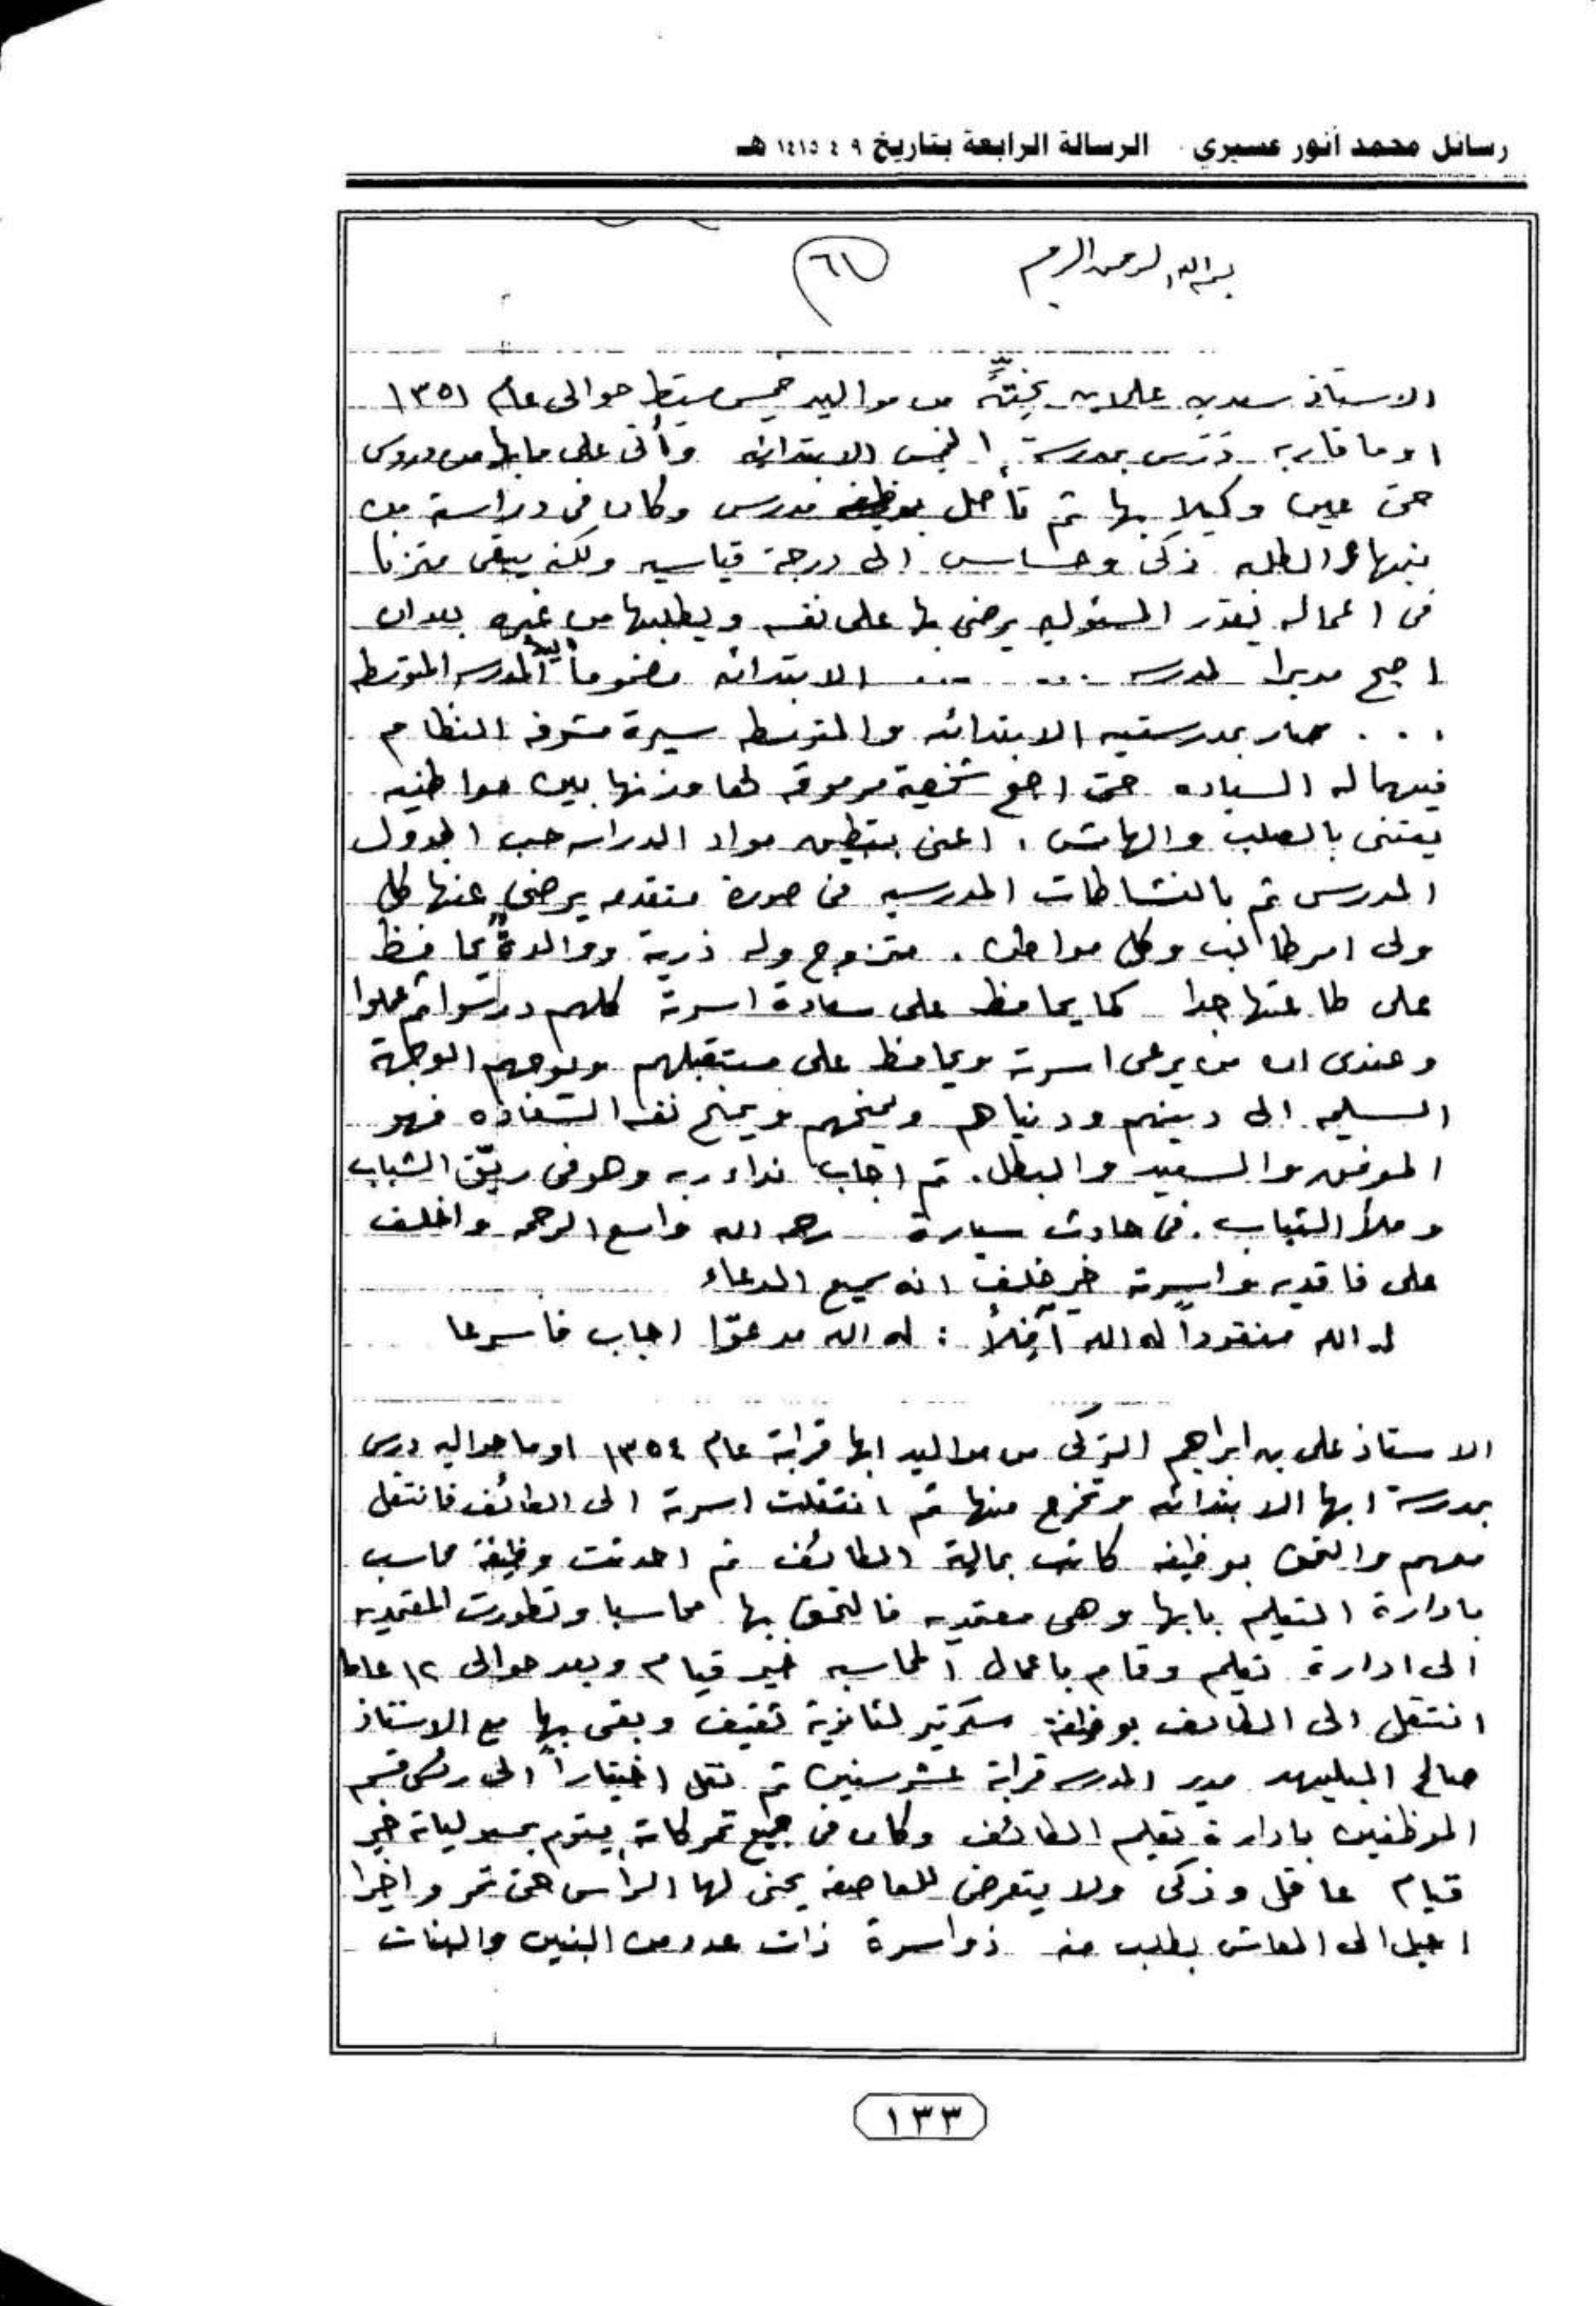 رسائل محمد أنور عسيري الرسالة الرابعة بتاريخ ٩ ٤ ١٤١٥ هـ
بسم الله الرحمن الرحيم ٦١
الاستاذ سعد بن علي من مواليد خميس مشيط حوالى عام ١٣٥١
او ما قاربه درس بمدرسة الخميس الابتدائيه وأتى على ما بها من دروس
حتى عين وكيلا بها ثم تأهل بوظيفه مدرس وكان فى دراسته من
نبهاء الطلبه ذكى وحساس الى درجة قياسيه ولكنه يبقى متزنا
فى اعماله يقدر المسئوليه يرضى بها على نفسه ويطلبها من غيره بعد ان
اصبح مديرا لمدرسه ... ... الابتدائه مضموماً اليها المدرسه المتوسطه
... سار بمدرستيه الابتدائه والمتوسطه سيرة مشرفه النظام
فيهما له السياده حتى اصبح شخصية مرموقه لها وزنها بين مواطنيه
يعتنى بالصلب والهامش، اعنى بتطبيق مواد الدراسه حسب الجدول
المدرسى ثم بالنشاطات المدرسيه فى صورة متقدمه يرضى عنها كل
ولى امر طالب وكل مواطن. متزوج وله ذرية ووالدة يحافظ
على طاعتها جدا كما يحافظ على سعادة اسرته كلهم درسوا ثم عملوا
وعندى ان من يرعى اسرته ويحافظ على مستقبلهم ويوجههم الوجهة
السليمه الى دينهم ودنياهم ويمنحهم ويمنح نفسه السعاده فهو
الموفق والسعيد والبطل. ثم اجاب نداء ربه وهو فى ريّق الشباب
وملأ الشباب. فى حادث سيارة رحمه الله واسع الرحمه واخلف
على فاقديه واسرته خير خلف انه سميع الدعاء
له الله مفقوداً له الله آفلاً : له الله مدعوّا اجاب فاسرعا
الاستاذ على بن ابراهيم التركى من مواليد ابها قرابة عام ١٣٥٤ او ما حواليه درس
بمدرسة ابها الابتدائه وتخرج منها ثم انتقلت اسرته الى الطائف فانتقل
معهم والتحق بوظيفه كاتب بمالية الطائف ثم احدثت وظيفة محاسب
بادارة التعليم بابها وهى معتمديه فالتحق بها محاسبا وتطورت المعتمديه
الى ادارة تعليم وقام باعمال المحاسبه خير قيام وبعد حوالى ١٢ عاما
انتقل الى الطائف بوظيفة سكرتير لثانوية ثقيف وبقى بها مع الاستاذ
صالح المبليهد مدير المدرسه قرابة عشر سنين ثم نقل اختياراً الى رئيس قسم
الموظفين بادارة تعليم الطائف وكان فى جميع تحركاته يقوم بمسولياته خير
قيام عاقل وذكى ولا يتعرض للعاصفه يحنى لها الرأس حتى تمر واخيرا
احيل الى المعاش بطلب منه ذو اسرة ذات عدد من البنين والبنات
١٣٣